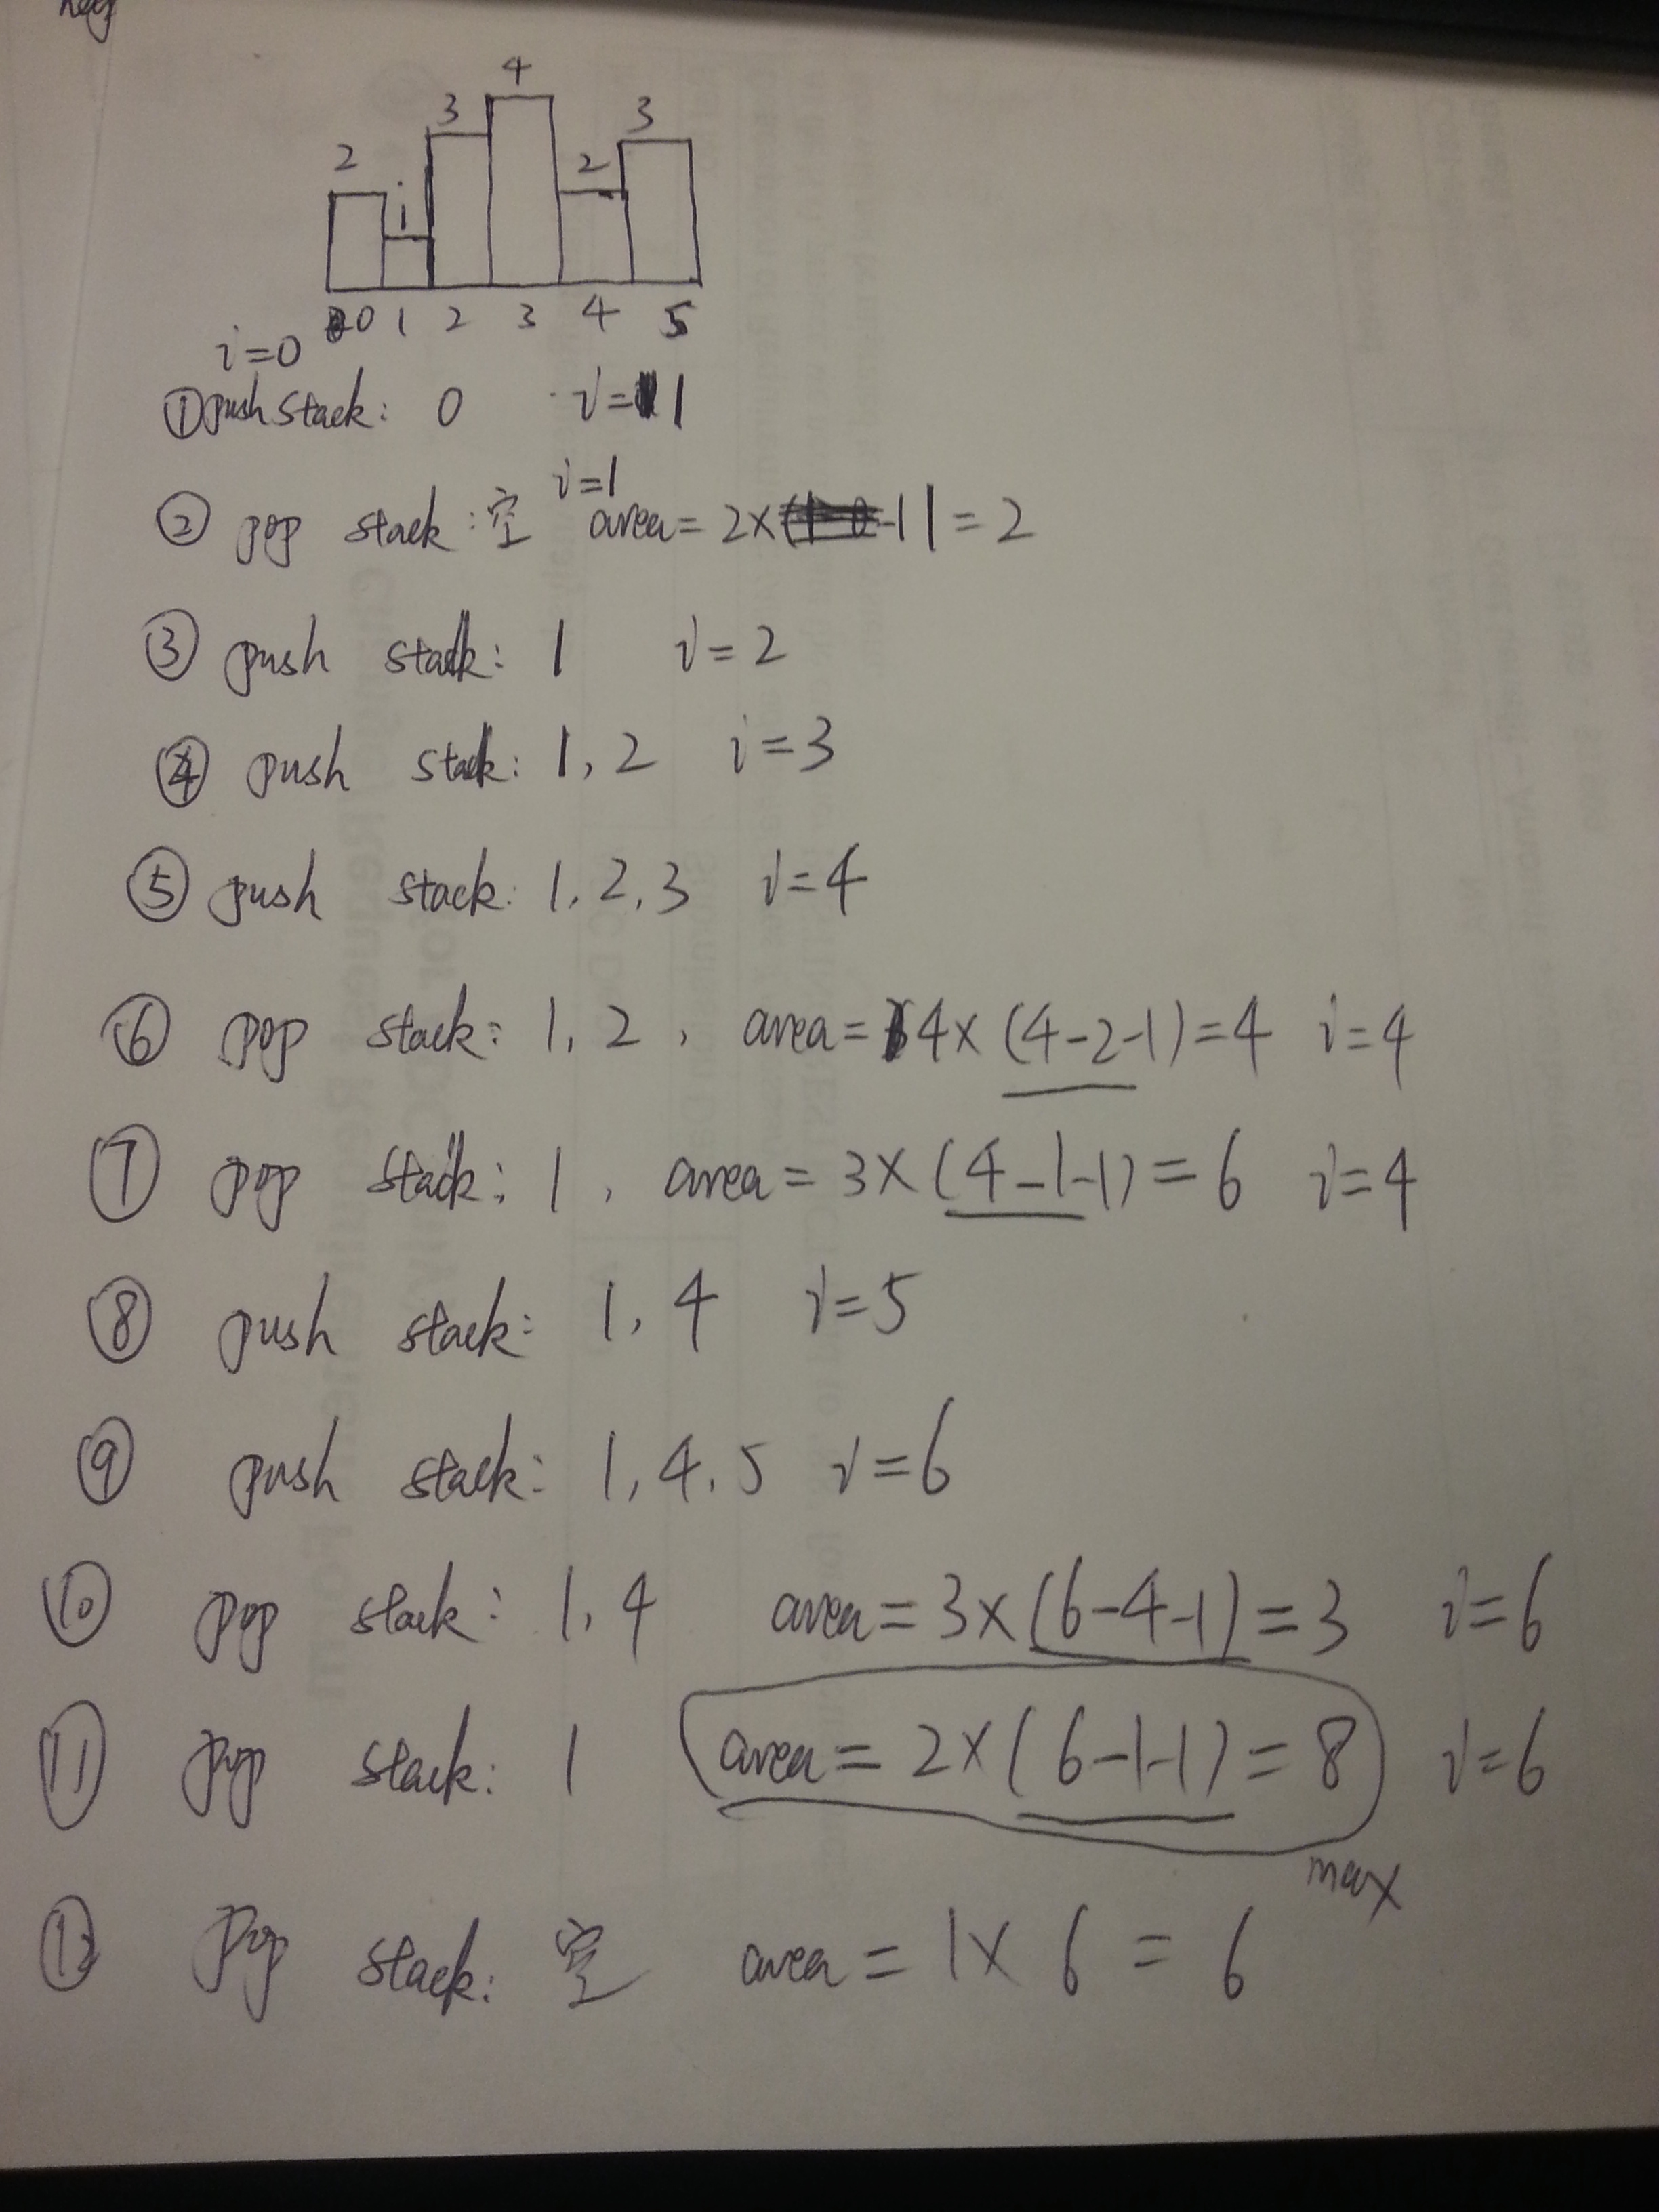 4
3 3
2 2
1
0 1 2 3 4 5
i=0
① push stack: 0 i=1
i=1
② pop stack: 空 area= 2×1=2
③ push stack: 1 i=2
④ push stack: 1, 2 i=3
⑤ push stack: 1, 2, 3 i=4
⑥ pop stack: 1, 2, area= 4×(4-2-1)=4 i=4
⑦ pop stack: 1, area= 3×(4-1-1)=6 i=4
⑧ push stack: 1, 4 i=5
⑨ push stack: 1, 4, 5 i=6
⑩ pop stack: 1, 4 area= 3×(6-4-1)=3 i=6
⑪ pop stack: 1 area= 2×(6-1-1)=8 i=6
max
⑫ Pop stack: 空 area= 1×6=6